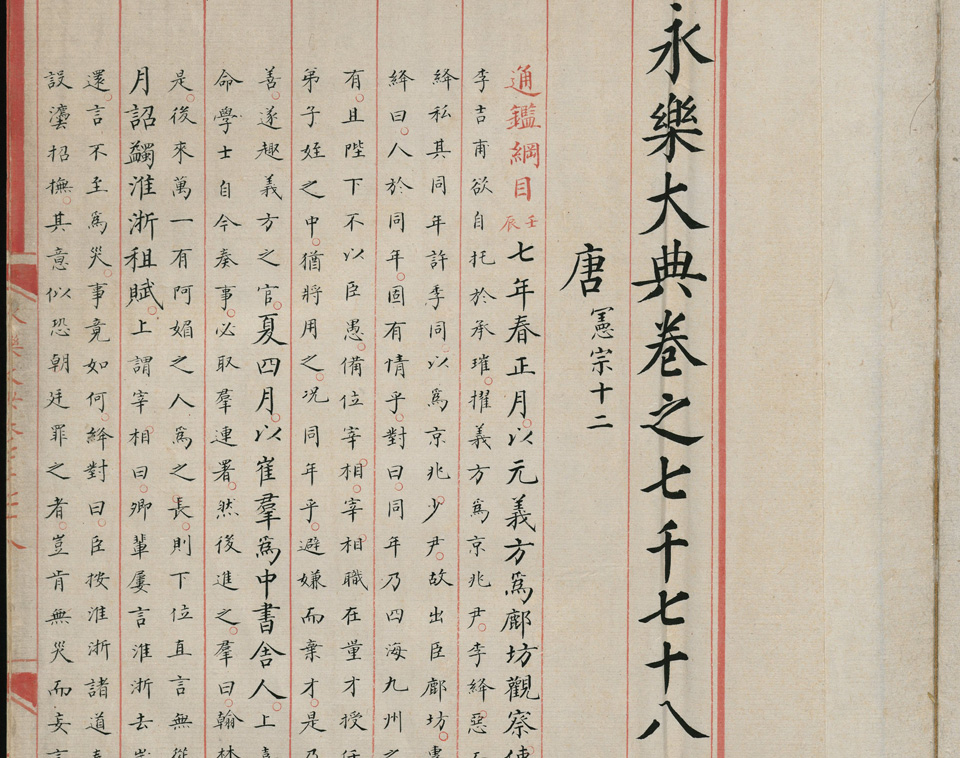 永樂大典卷之七千七十八
唐 憲宗十二
通鑑綱目 壬辰 七年春正月。以元義方爲鄜坊觀察使
李吉甫欲自托於承璀。擢義方爲京兆尹。李絳惡
絳私其同年許季同。以爲京兆少尹。故出臣鄜坊。專
絳曰。人於同年。固有情乎。對曰。同年乃四海九州之
有。且陛下不以臣愚。備位宰相。宰相職在量才授任
弟子姪之中。猶將用之。况同年乎。避嫌而棄才。是乃
善。遂趣義方之官。夏四月。以崔羣爲中書舍人。上
命學士自今奏事。必取羣連署。然後進之。羣曰。翰林
是。後來萬一有阿媚之人爲之長。則下位直言無從
月詔蠲淮浙租賦。上謂宰相曰。卿輩屢言淮浙去歲
還。言不至爲災。事竟如何。絳對曰。臣按淮浙諸道
設灋招撫。其意似恐朝廷罪之者。豈肯無災而妄言